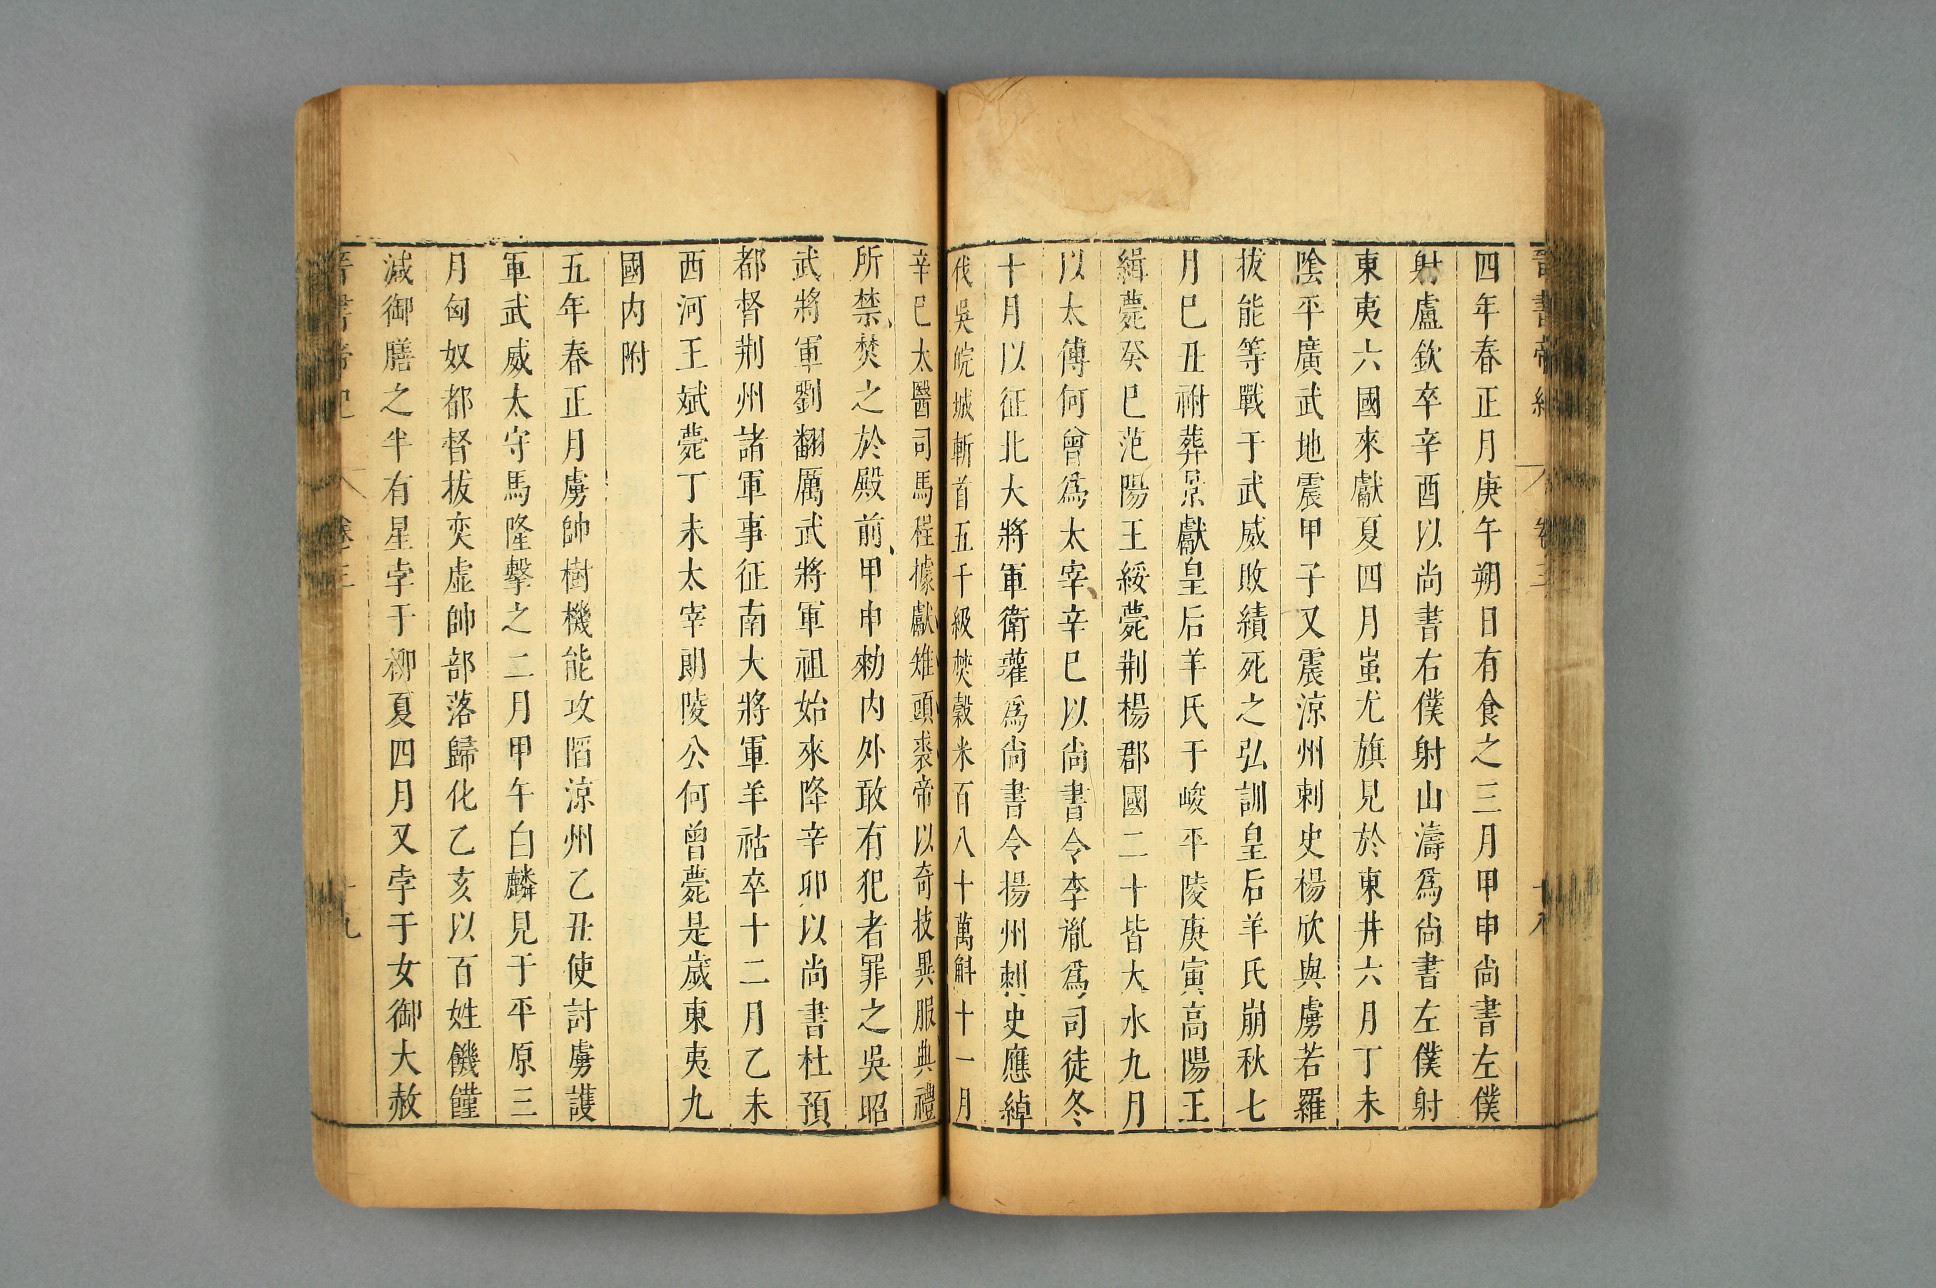 晉書帝紀 卷三 十八
四年春正月庚午朔日有食之三月甲申尚書左僕
射盧欽卒辛酉以尚書右僕射山濤爲尚書左僕射
東夷六國來獻夏四月蚩尤旗見於東井六月丁未
陰平廣武地震甲子又震涼州刺史楊欣與虜若羅
拔能等戰于武威敗績死之弘訓皇后羊氏崩秋七
月巳丑祔葬景獻皇后羊氏于峻平陵庚寅高陽王
緝薨癸巳范陽王綏薨荆楊郡國二十皆大水九月
以太傅何曾爲太宰辛巳以尚書令李胤爲司徒冬
十月以征北大將軍衛瓘爲尚書令揚州刺史應綽
伐吳皖城斬首五千級焚穀米百八十萬斛十一月
辛巳太醫司馬程據獻雉頭裘帝以奇技異服典禮
所禁焚之於殿前甲申勑内外敢有犯者罪之吳昭
武將軍劉翻厲武將軍祖始來降辛卯以尚書杜預
都督荆州諸軍事征南大將軍羊祜卒十二月乙未
西河王斌薨丁未太宰朗陵公何曾薨是歲東夷九
國内附
五年春正月虜帥樹機能攻陷涼州乙丑使討虜護
軍武威太守馬隆擊之二月甲午白麟見于平原三
月匈奴都督拔奕虛帥部落歸化乙亥以百姓饑饉
減御膳之半有星孛于柳夏四月又孛于女御大赦
晉書帝紀 卷三 十九